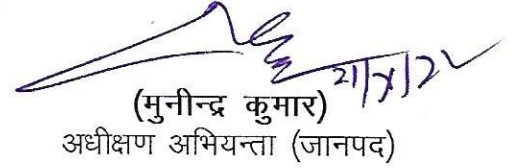 21/X/22
(मुनीन्द्र कुमार)
अधीक्षण अभियन्ता (जानपद)